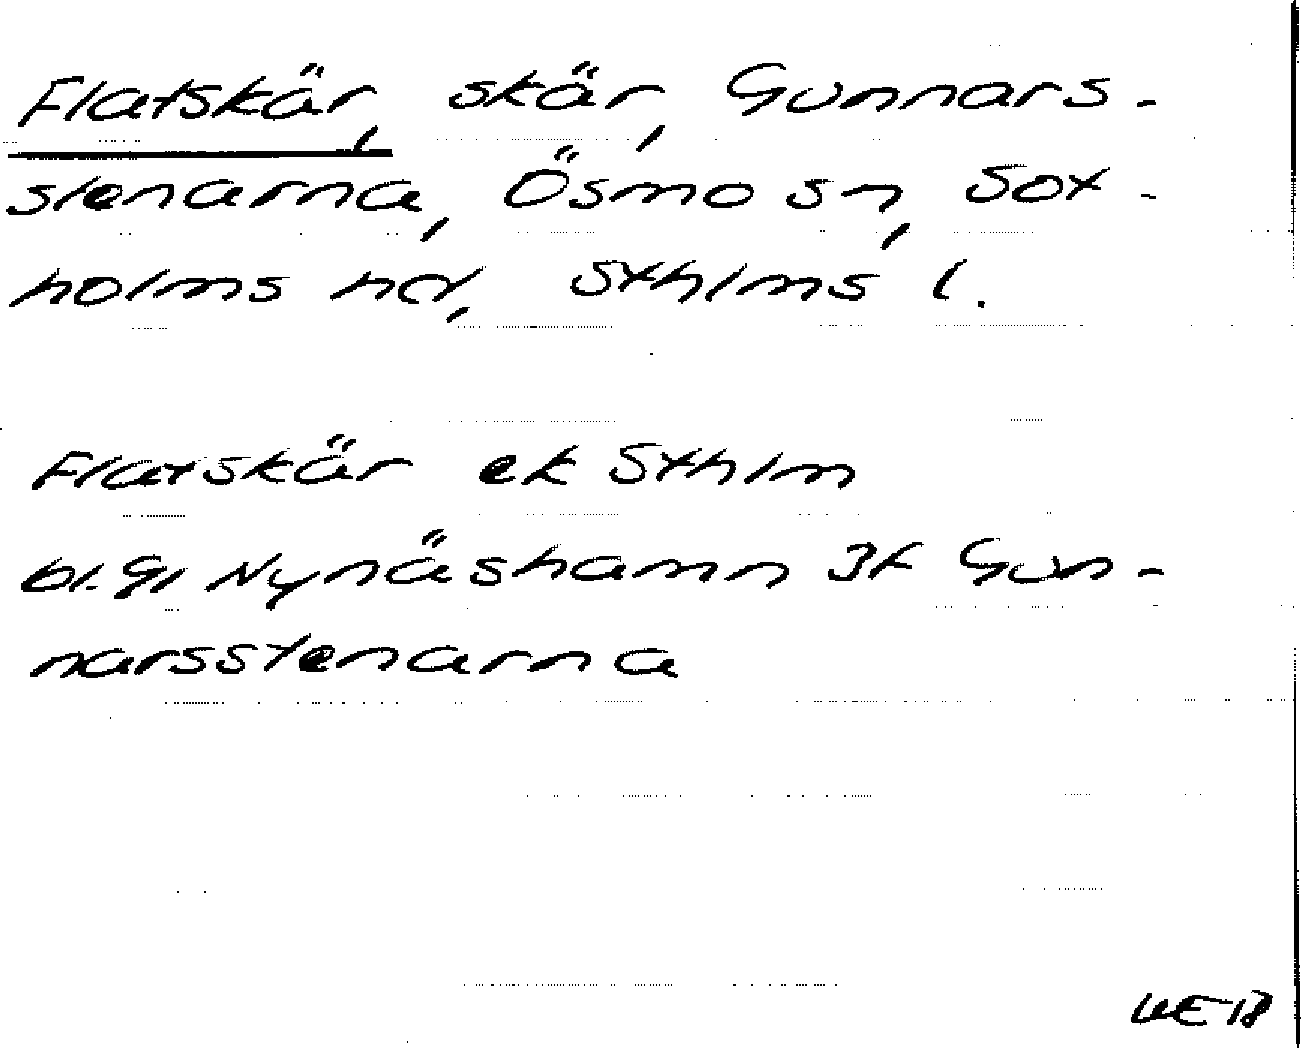 Flatskär, skär, Gunnars-
stenarna, Ösmo sn, Sot-
holms hd, Sthlms l.
Flatskär ek Sthlm
bl. 9i Nynäshamn 3f Gun-
narsstenarna